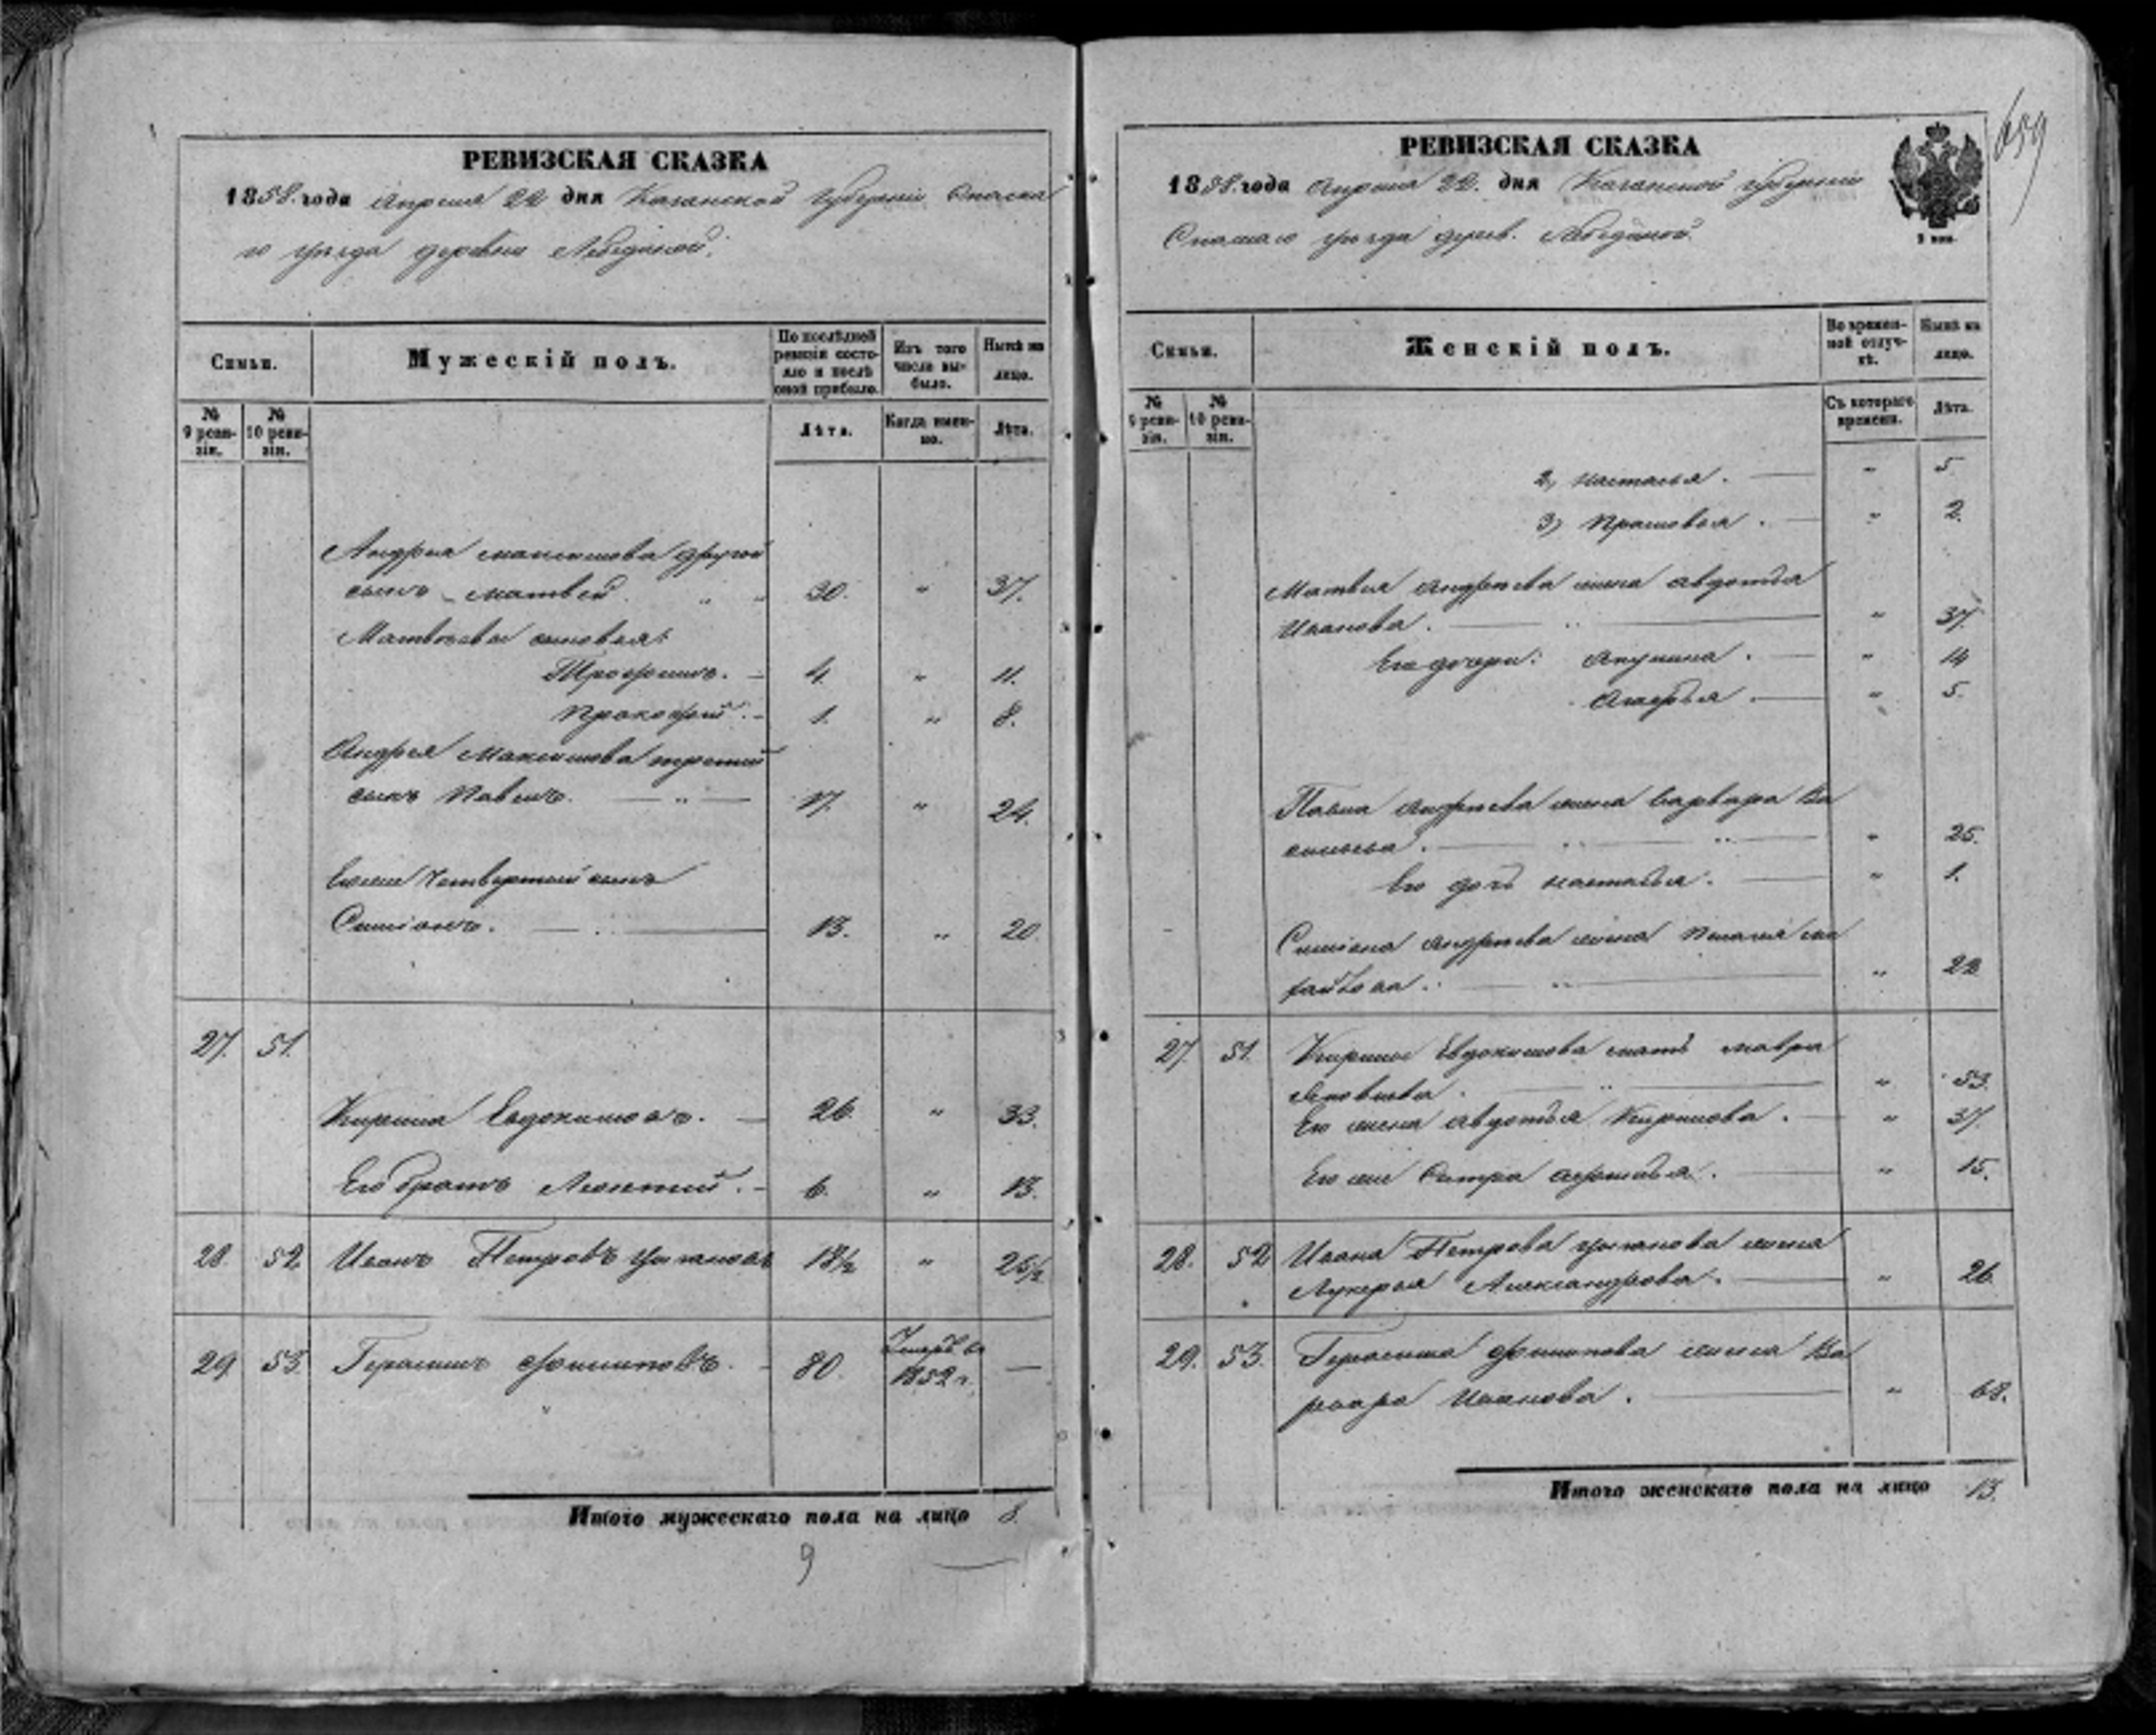 РЕВИЗСКАЯ СКАЗКА
1858. года Апреля 22 дня Казанской Губернии Спаска
го уезда деревни Лебединой.
Семьи.
Мужескій полъ.
По послѣдней ревизіи состояло и послѣ оной прибыло.
Изъ того числа выбыло.
Нынѣ на лицо.
№ 9 ревизіи.
№ 10 ревизіи.
Лѣта.
Когда именно.
Лѣта.
Андрея Максимова другой
сынъ Матвей. " " 30. " 37.
Матвеевы сыновья:
Трофимъ. — 4. " 11.
Прокофий. — 1. " 8.
Андрея Максимова третий
сынъ Павелъ. — " — 17. " 24.
Его же Четвертый сынъ
Симіонъ. — " — 13. " 20.
27. 51.
Кирила Евдокимовъ. — 26. " 33.
Его братъ Леонтий. — 6. " 13.
28. 52. Иванъ Петровъ Цыгановъ 18½ " 25½
29. 53. Герасимъ Филиповъ. — 80. Умеръ въ 1852 г. —
Итого мужескаго пола на лицо 8.
9
659
РЕВИЗСКАЯ СКАЗКА
1858. года Апреля 22. дня Казанской губернии
Спаскаго уезда дерев. Лебединой.
3 коп.
Семьи.
Женскій полъ.
Во временной отлучкѣ.
Нынѣ на лицо.
№ 9 ревизіи.
№ 10 ревизіи.
Съ котораго времени.
Лѣта.
2, Настасья. — " 5.
3, Прасковья. — " 2.
Матвея Андреева жена Авдотья
Иванова. — " — " 37.
Его дочери: Акулина. — " 14
Агафья. — " 5.
Павла Андреева жена Варвара Ва
сильева. — " " — " 25.
Его дочь Настасья. — " 1.
Симіона Андреева жена Пелагея Ми
хайлова. — " — " 22
27. 51. Кирилы Евдокимова мать Мавра
" — " 53.
Его жена Авдотья Кирилова. — " 37.
Его же Сестра Афимья. — " 15.
28. 52 Ивана Петрова Цыганова жена
Лукерья Александрова. — " 26.
29. 53. Герасима Филипова жена Ва
рвара Иванова. — " 68.
Итого женскаго пола на лицо 13.